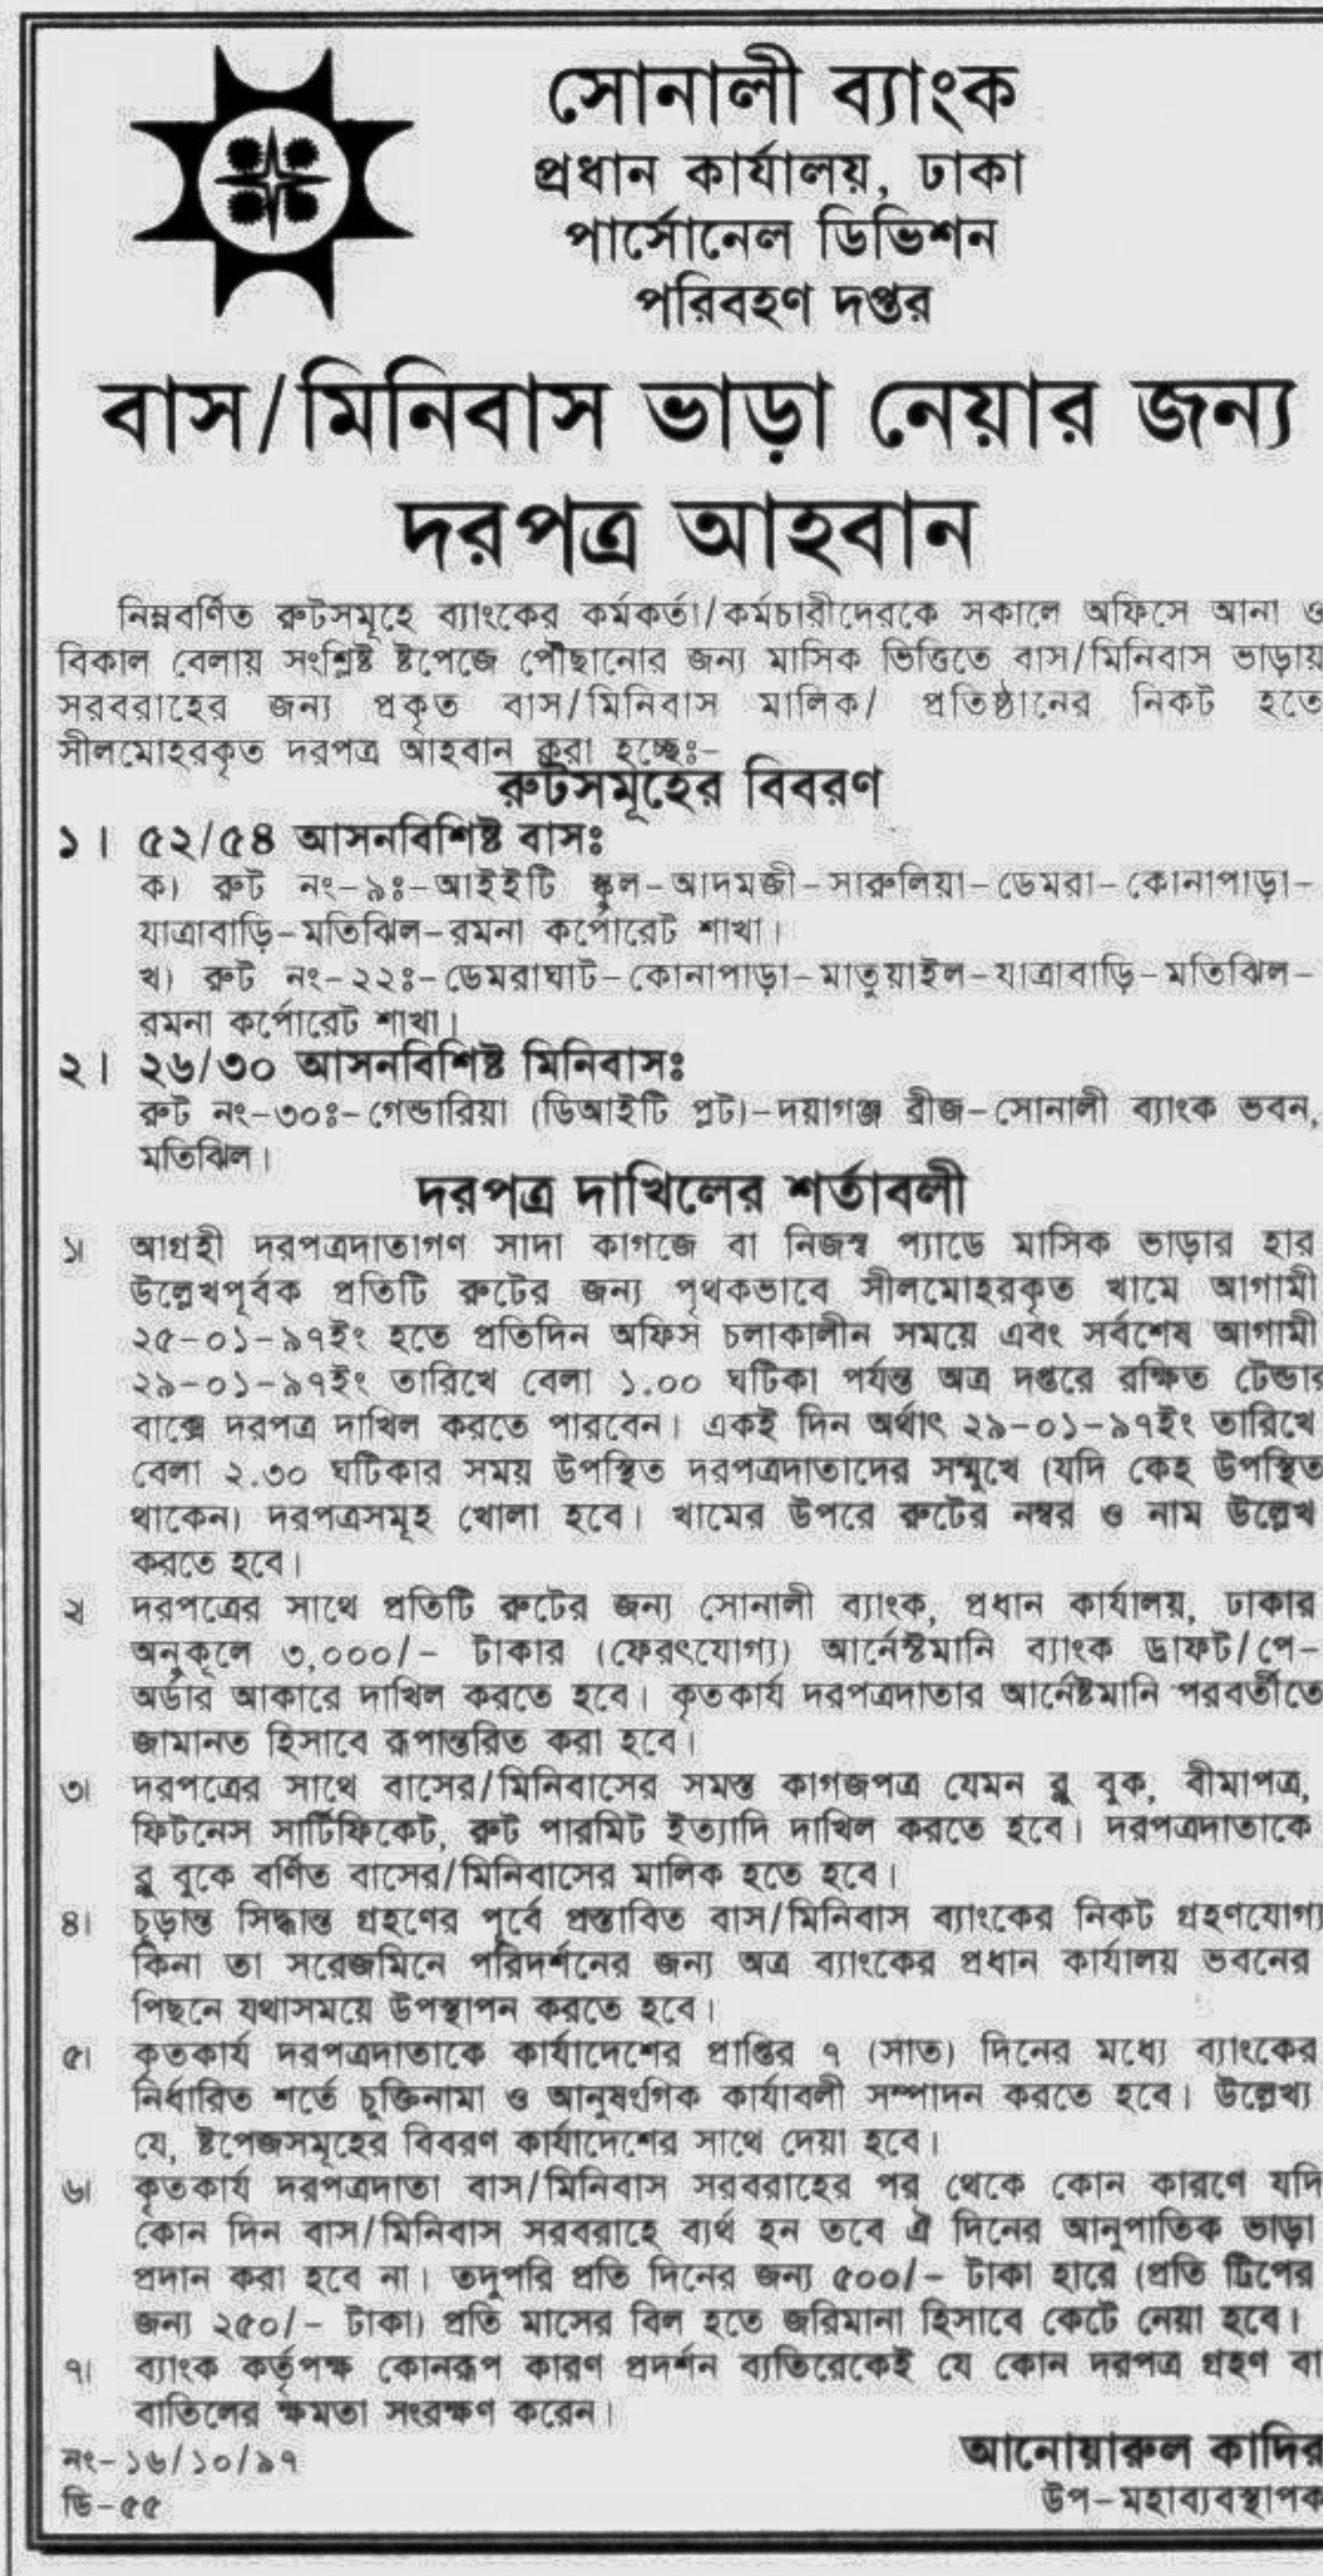 সোনালী ব্যাংক
প্রধান কার্যালয়, ঢাকা
পার্সোনেল ডিভিশন
পরিবহণ দপ্তর
বাস/মিনিবাস ভাড়া নেয়ার জন্য
দরপত্র আহবান
নিম্নবর্ণিত রুটসমূহে ব্যাংকের কর্মকর্তা/কর্মচারীদেরকে সকালে অফিসে আনা ও
বিকাল বেলায় সংশ্লিষ্ট ষ্টপেজে পৌঁছানোর জন্য মাসিক ভিত্তিতে বাস/মিনিবাস ভাড়ায়
সরবরাহের জন্য প্রকৃত বাস/মিনিবাস মালিক/ প্রতিষ্ঠানের নিকট হতে
সীলমোহরকৃত দরপত্র আহবান করা হচ্ছেঃ-
রুটসমূহের বিবরণ
১। ৫২/৫৪ আসনবিশিষ্ট বাসঃ
ক) রুট নং-৯ঃ-আইইটি স্কুল-আদমজী-সারুলিয়া-ডেমরা-কোনাপাড়া-
যাত্রাবাড়ি-মতিঝিল-রমনা কর্পোরেট শাখা।
খ) রুট নং-২২ঃ-ডেমরাঘাট-কোনাপাড়া-মাতুয়াইল-যাত্রাবাড়ি-মতিঝিল-
রমনা কর্পোরেট শাখা।
২। ২৬/৩০ আসনবিশিষ্ট মিনিবাসঃ
রুট নং-৩০ঃ-গেন্ডারিয়া (ডিআইটি প্লট)-দয়াগঞ্জ ব্রীজ-সোনালী ব্যাংক ভবন,
মতিঝিল।
দরপত্র দাখিলের শর্তাবলী
১। আগ্রহী দরপত্রদাতাগণ সাদা কাগজে বা নিজস্ব প্যাডে মাসিক ভাড়ার হার
উল্লেখপূর্বক প্রতিটি রুটের জন্য পৃথকভাবে সীলমোহরকৃত খামে আগামী
২৫-০১-৯৭ইং হতে প্রতিদিন অফিস চলাকালীন সময়ে এবং সর্বশেষ আগামী
২৯-০১-৯৭ইং তারিখে বেলা ১.০০ ঘটিকা পর্যন্ত অত্র দপ্তরে রক্ষিত টেন্ডার
বাক্সে দরপত্র দাখিল করতে পারবেন। একই দিন অর্থাৎ ২৯-০১-৯৭ইং তারিখে
বেলা ২.৩০ ঘটিকার সময় উপস্থিত দরপত্রদাতাদের সম্মুখে (যদি কেহ উপস্থিত
থাকেন) দরপত্রসমূহ খোলা হবে। খামের উপরে রুটের নম্বর ও নাম উল্লেখ
করতে হবে।
২। দরপত্রের সাথে প্রতিটি রুটের জন্য সোনালী ব্যাংক, প্রধান কার্যালয়, ঢাকার
অনুকূলে ৩,০০০/- টাকার (ফেরৎযোগ্য) আর্নেস্টমানি ব্যাংক ড্রাফট/পে-
অর্ডার আকারে দাখিল করতে হবে। কৃতকার্য দরপত্রদাতার আর্নেষ্টমানি পরবর্তীতে
জামানত হিসাবে রূপান্তরিত করা হবে।
৩। দরপত্রের সাথে বাসের/মিনিবাসের সমস্ত কাগজপত্র যেমন ব্লু বুক, বীমাপত্র,
ফিটনেস সার্টিফিকেট, রুট পারমিট ইত্যাদি দাখিল করতে হবে। দরপত্রদাতাকে
ব্লু বুকে বর্ণিত বাসের/মিনিবাসের মালিক হতে হবে।
৪। চূড়ান্ত সিদ্ধান্ত গ্রহণের পূর্বে প্রস্তাবিত বাস/মিনিবাস ব্যাংকের নিকট গ্রহণযোগ্য
কিনা তা সরেজমিনে পরিদর্শনের জন্য অত্র ব্যাংকের প্রধান কার্যালয় ভবনের
পিছনে যথাসময়ে উপস্থাপন করতে হবে।
৫। কৃতকার্য দরপত্রদাতাকে কার্যাদেশের প্রাপ্তির ৭ (সাত) দিনের মধ্যে ব্যাংকের
নির্ধারিত শর্তে চুক্তিনামা ও আনুষংগিক কার্যাবলী সম্পাদন করতে হবে। উল্লেখ্য
যে, ষ্টপেজসমূহের বিবরণ কার্যাদেশের সাথে দেয়া হবে।
৬। কৃতকার্য দরপত্রদাতা বাস/মিনিবাস সরবরাহের পর থেকে কোন কারণে যদি
কোন দিন বাস/মিনিবাস সরবরাহে ব্যর্থ হন তবে ঐ দিনের আনুপাতিক ভাড়া
প্রদান করা হবে না। তদুপরি প্রতি দিনের জন্য ৫০০/- টাকা হারে (প্রতি ট্রিপের
জন্য ২৫০/- টাকা) প্রতি মাসের বিল হতে জরিমানা হিসাবে কেটে নেয়া হবে।
৭। ব্যাংক কর্তৃপক্ষ কোনরূপ কারণ প্রদর্শন ব্যতিরেকেই যে কোন দরপত্র গ্রহণ বা
বাতিলের ক্ষমতা সংরক্ষণ করেন।
নং-১৬/১০/৯৭
ডি-৫৫
আনোয়ারুল কাদির
উপ-মহাব্যবস্থাপক